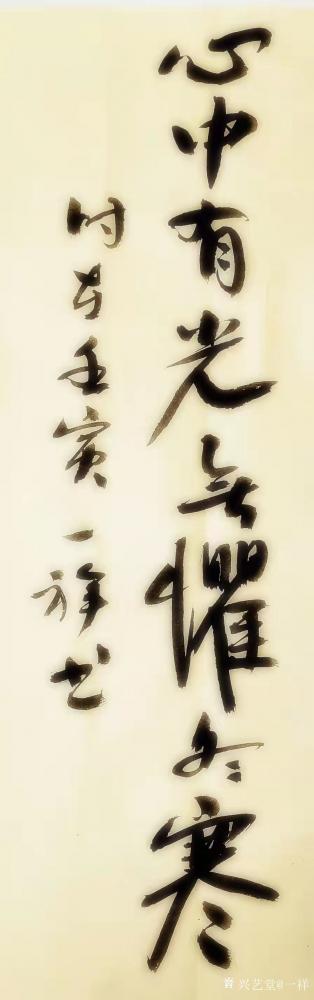 心中有光无惧冬寒
时在壬寅一祥书
兴艺堂@一样